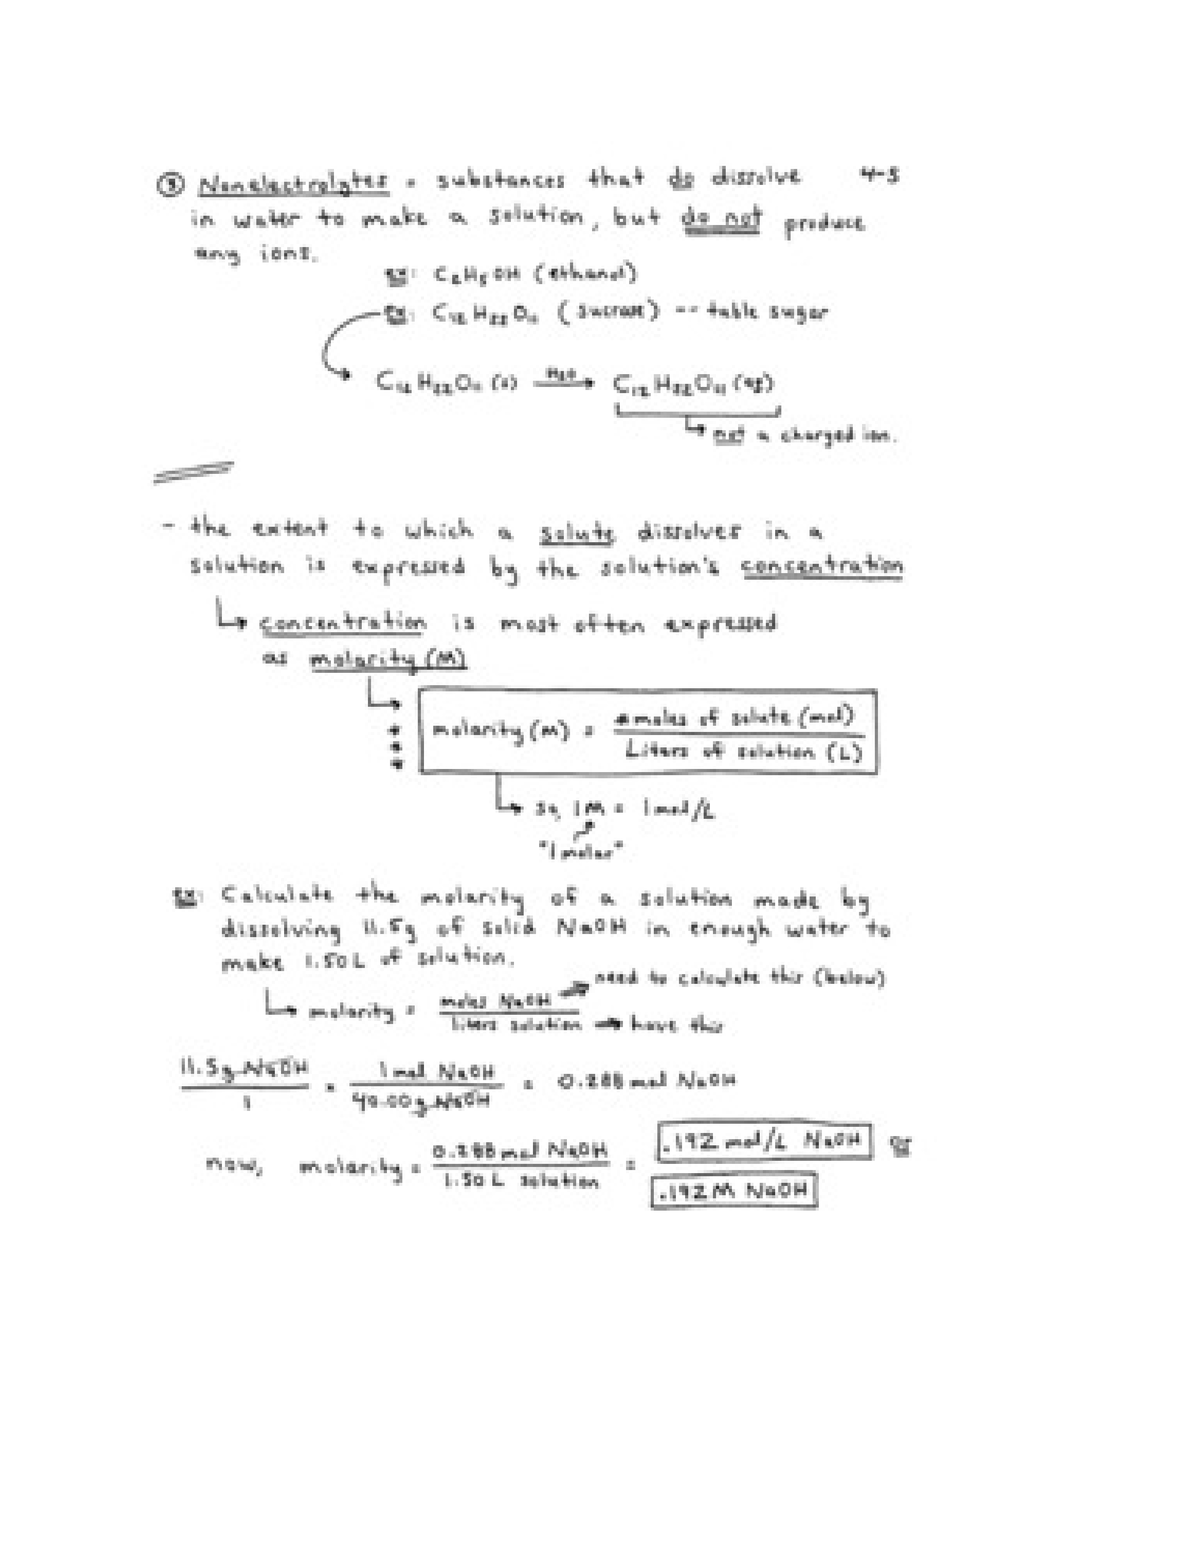 ③ Nonelectrolytes = substances that do dissolve 4-5
in water to make a solution, but do not produce
any ions.
ex: C₂H₅OH (ethanol)
ex: C₁₂H₂₂O₁₁ (sucrose) -- table sugar
C₁₂H₂₂O₁₁ (s) H₂O → C₁₂H₂₂O₁₁ (aq)
↳ not a charged ion.
- the extent to which a solute dissolves in a
solution is expressed by the solution's concentration
↳ concentration is most often expressed
as molarity (M)
molarity (M) = # moles of solute (mol) / Liters of solution (L)
↳ so, 1M = 1 mol/L
"1 molar"
ex: Calculate the molarity of a solution made by
dissolving 11.5g of solid NaOH in enough water to
make 1.50L of solution.
↳ molarity = moles NaOH / liters solution → need to calculate this (below)
→ have this
11.5g NaOH / 1 × 1 mol NaOH / 40.00g NaOH = 0.288 mol NaOH
now, molarity = 0.288 mol NaOH / 1.50 L solution = .192 mol/L NaOH or
.192 M NaOH